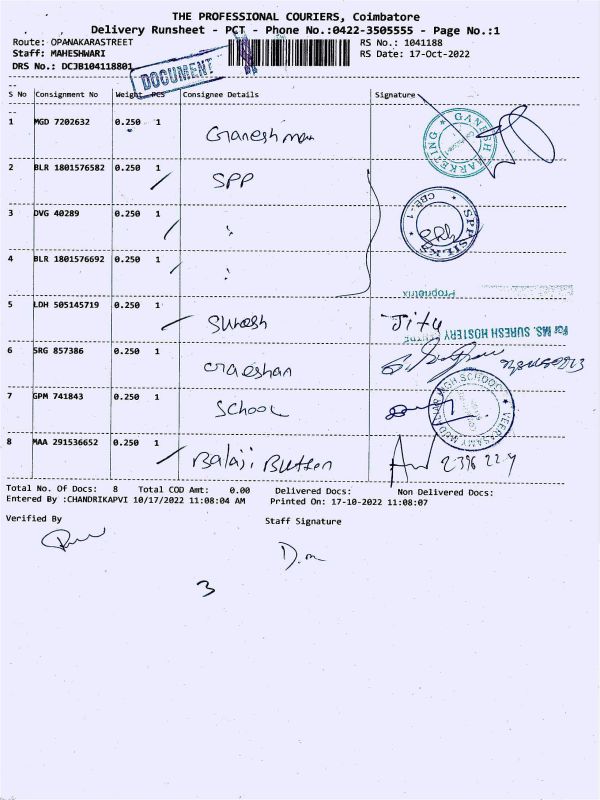 THE PROFESSIONAL COURIERS, Coimbatore
Delivery Runsheet - PCT - Phone No.:0422-3505555 - Page No.:1
Route: OPANAKARASTREET RS No.: 1041188
Staff: MAHESHWARI RS Date: 17-Oct-2022
DRS No.: DCJB104118801
DOCUMENT
S No Consignment No Weight PCS Consignee Details Signature
1 MGD 7202632 0.250 1 Ganesh
GANESH MARKETING
2 BLR 1801576582 0.250 1 SPP
3 DVG 40289 0.250 1 "
SPP SILKS CBE-1
4 BLR 1801576692 0.250 1 "
Proprietrix
5 LDH 505145719 0.250 1 Suresh Jitu
For MS. SURESH HOSIERY CENTRE
6 SRG 857386 0.250 1
7 GPM 741843 0.250 1 School
HIGH SCHOOL
8 MAA 291536652 0.250 1 Balaji Button
Total No. Of Docs: 8 Total COD Amt: 0.00 Delivered Docs: Non Delivered Docs:
Entered By :CHANDRIKAPVI 10/17/2022 11:08:04 AM Printed On: 17-10-2022 11:08:07
Verified By Staff Signature
D.m
3